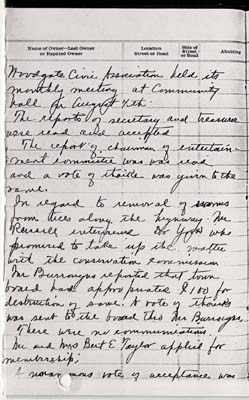 Name of Owner—Last Owner or Reputed Owner
Location Street or Road
Side of Street or Road
Abutting
Woodgate Civic Association held its
monthly meeting at Community
hall on August 7th.
The reports of secretary and treasurer
were read and accepted
The report of chairman of entertain-
ment committee was was read
and a vote of thanks was given to the
same.
In regard to removal of worms
from trees along the highway Mr
Russell interviewed Dr York who
promised to take up the matter
with the conservation commission
Mr Burroughs reported that town
board had appropriated $100 for
destruction of same. A vote of thanks
was sent to the board thru Mr Burroughs.
There were no communications
Mr and Mrs Bert E. Taylor applied for
membership;
A vote of acceptance was